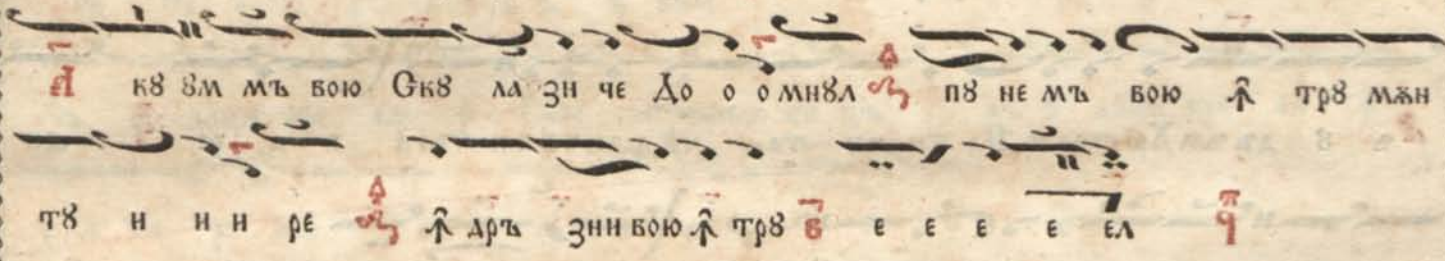 А кꙋ ꙋм мъ вою Скꙋ ла зи че До о о мнꙋл пꙋ не мъ вою ꙟ трꙋ мѫн
тꙋ и и и ре ꙟ дръ зни вою ꙟ трꙋ е е е е ел